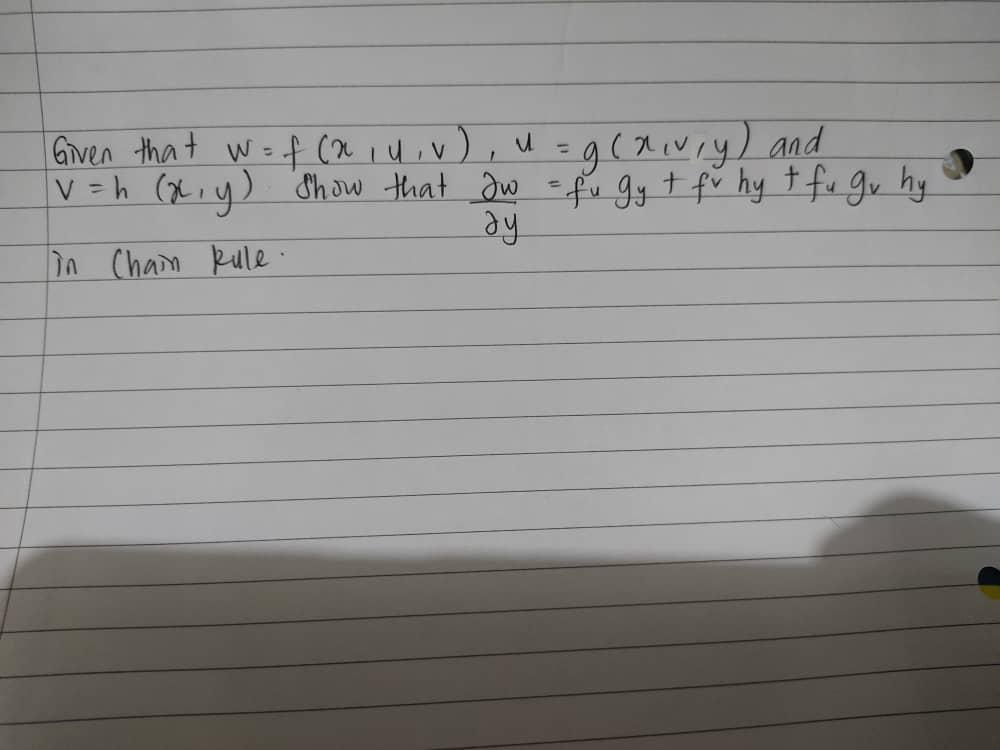 Given that w = f (x, u, v), u = g(x, v, y) and
v = h (x, y). Show that ∂w/∂y = fu gy + fv hy + fu gv hy
in Chain Rule.